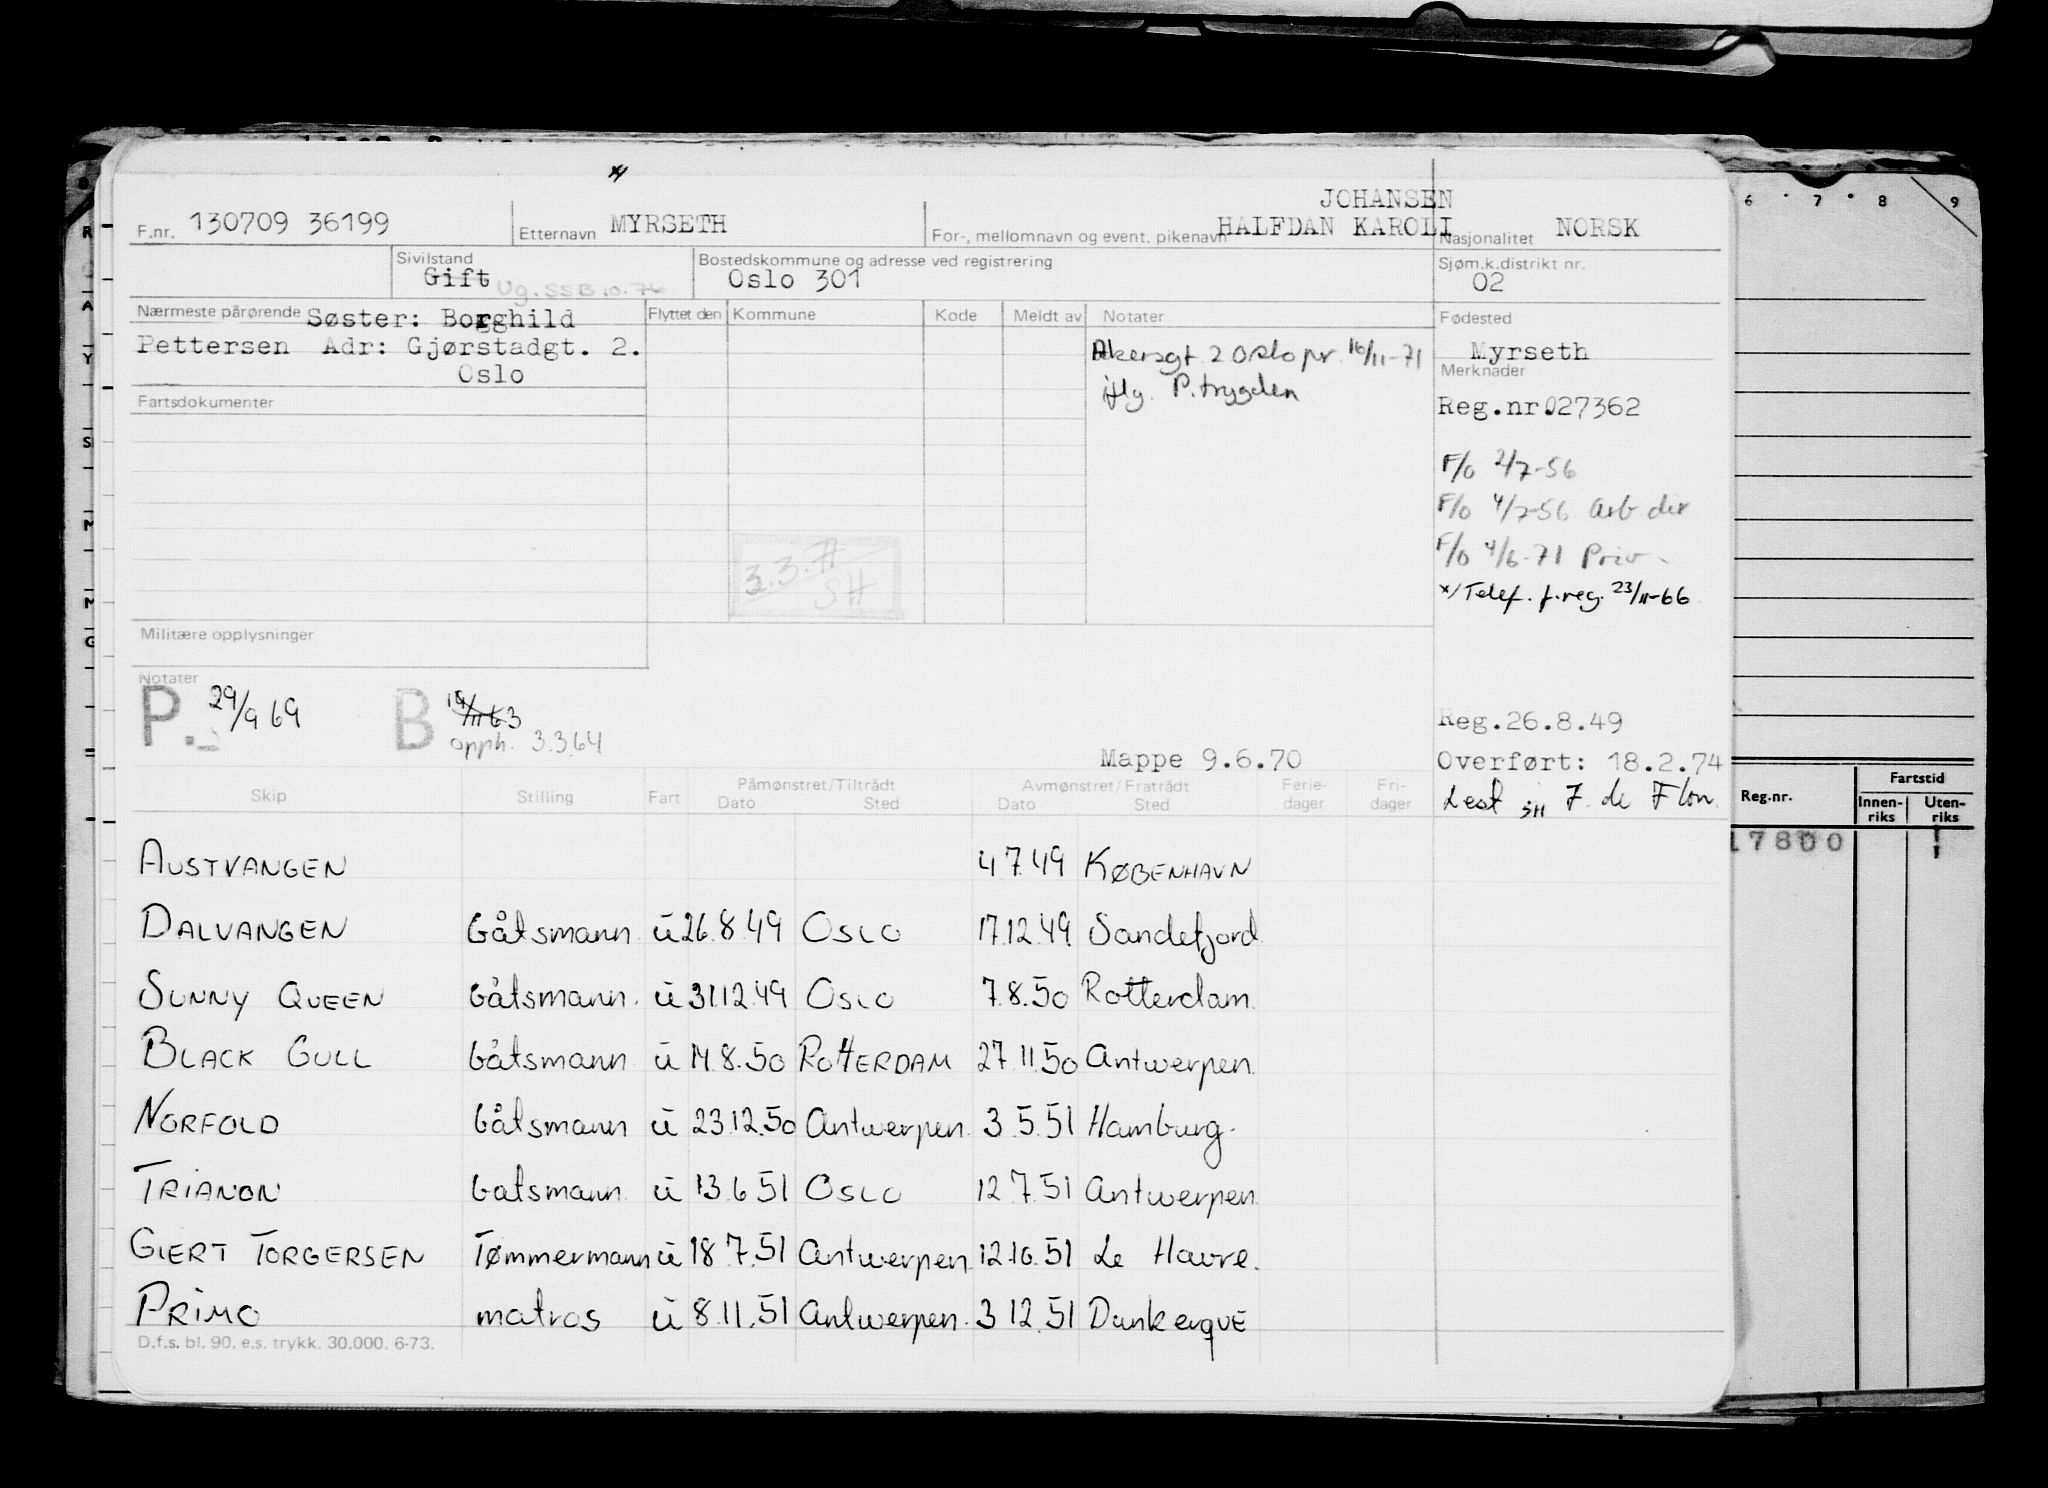 JOHANSEN
F.nr. 130709 36199 Etternavn MYRSETH For-, mellomnavn og event. pikenavn HALFDAN KAROLI Nasjonalitet NORSK
Sivilstand Bostedskommune og adresse ved registrering Sjøm.k.distrikt nr.
Gift Ug. SSB 10.76 Oslo 301 02
Nærmeste pårørende Søster: Borghild Flyttet den Kommune Kode Meldt av Notater Fødested
Pettersen Adr: Gjørstadgt. 2. Akersgt. 2 Oslo pr. 16/11-71 Myrseth
Oslo iflg. P.trygden Merknader
Fartsdokumenter Reg.nr.027362
F/o 2/7-56
F/o 4/7-56 Arb dir
F/o 4/6-71 Priv.
3.3.71
SH
x/ Telef. f.reg. 23/11-66
Militære opplysninger
Notater
P. 29/9 69 B 19/11 63
opph. 3.3.64
Reg.26.8.49
Mappe 9.6.70 Overført: 18.2.74
Lest SH
Skip Stilling Fart Påmønstret/Tiltrådt Avmønstret/Fratrådt Ferie- Fri-
Dato Sted Dato Sted dager dager
AUSTVANGEN 4 7 49 KØBENHAVN
DALVANGEN båtsmann u 26.8.49 OSLO 17.12.49 Sandefjord
SUNNY QUEEN båtsmann. u 31.12.49 OSLO 7.8.50 Rotterdam.
BLACK GULL båtsmann u 14.8.50 ROTTERDAM 27.11.50 Antwerpen
NORFOLD båtsmann u 23.12.50 Antwerpen. 3.5.51 Hamburg.
TRIANON batsmann u 13.6.51 OSLO 12 7.51 Antwerpen
GIERT TORGERSEN Tømmermann u 18 7.51 Antwerpen 12.10.51 Le Havre.
PRIMO matros u 8.11.51 Antwerpen. 3 12.51 DunkerqUE
D.f.s. bl. 90. e.s. trykk. 30.000. 6-73.
6 7 8 9
Reg.nr. Fartstid
Innen- Uten-
riks riks
17800
R
A
Y
S
G